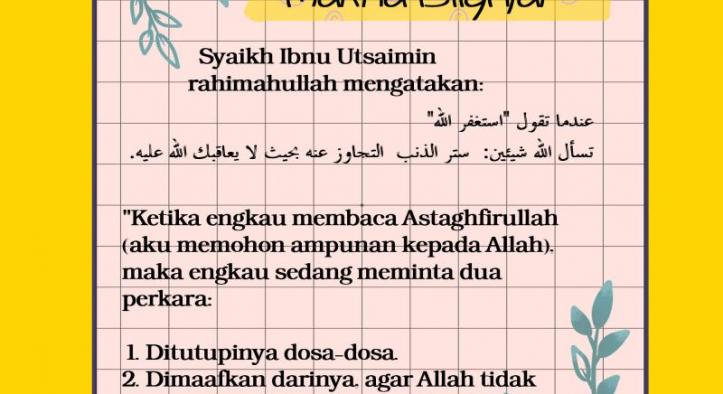 Syaikh Ibnu Utsaimin
rahimahullah mengatakan:
عندما تقول "استغفر الله"
تسأل الله شيئين: ستر الذنب التجاوز عنه بحيث لا يعاقبك الله عليه.
"Ketika engkau membaca Astaghfirullah
(aku memohon ampunan kepada Allah),
maka engkau sedang meminta dua
perkara:
1. Ditutupinya dosa-dosa.
2. Dimaafkan darinya, agar Allah tidak